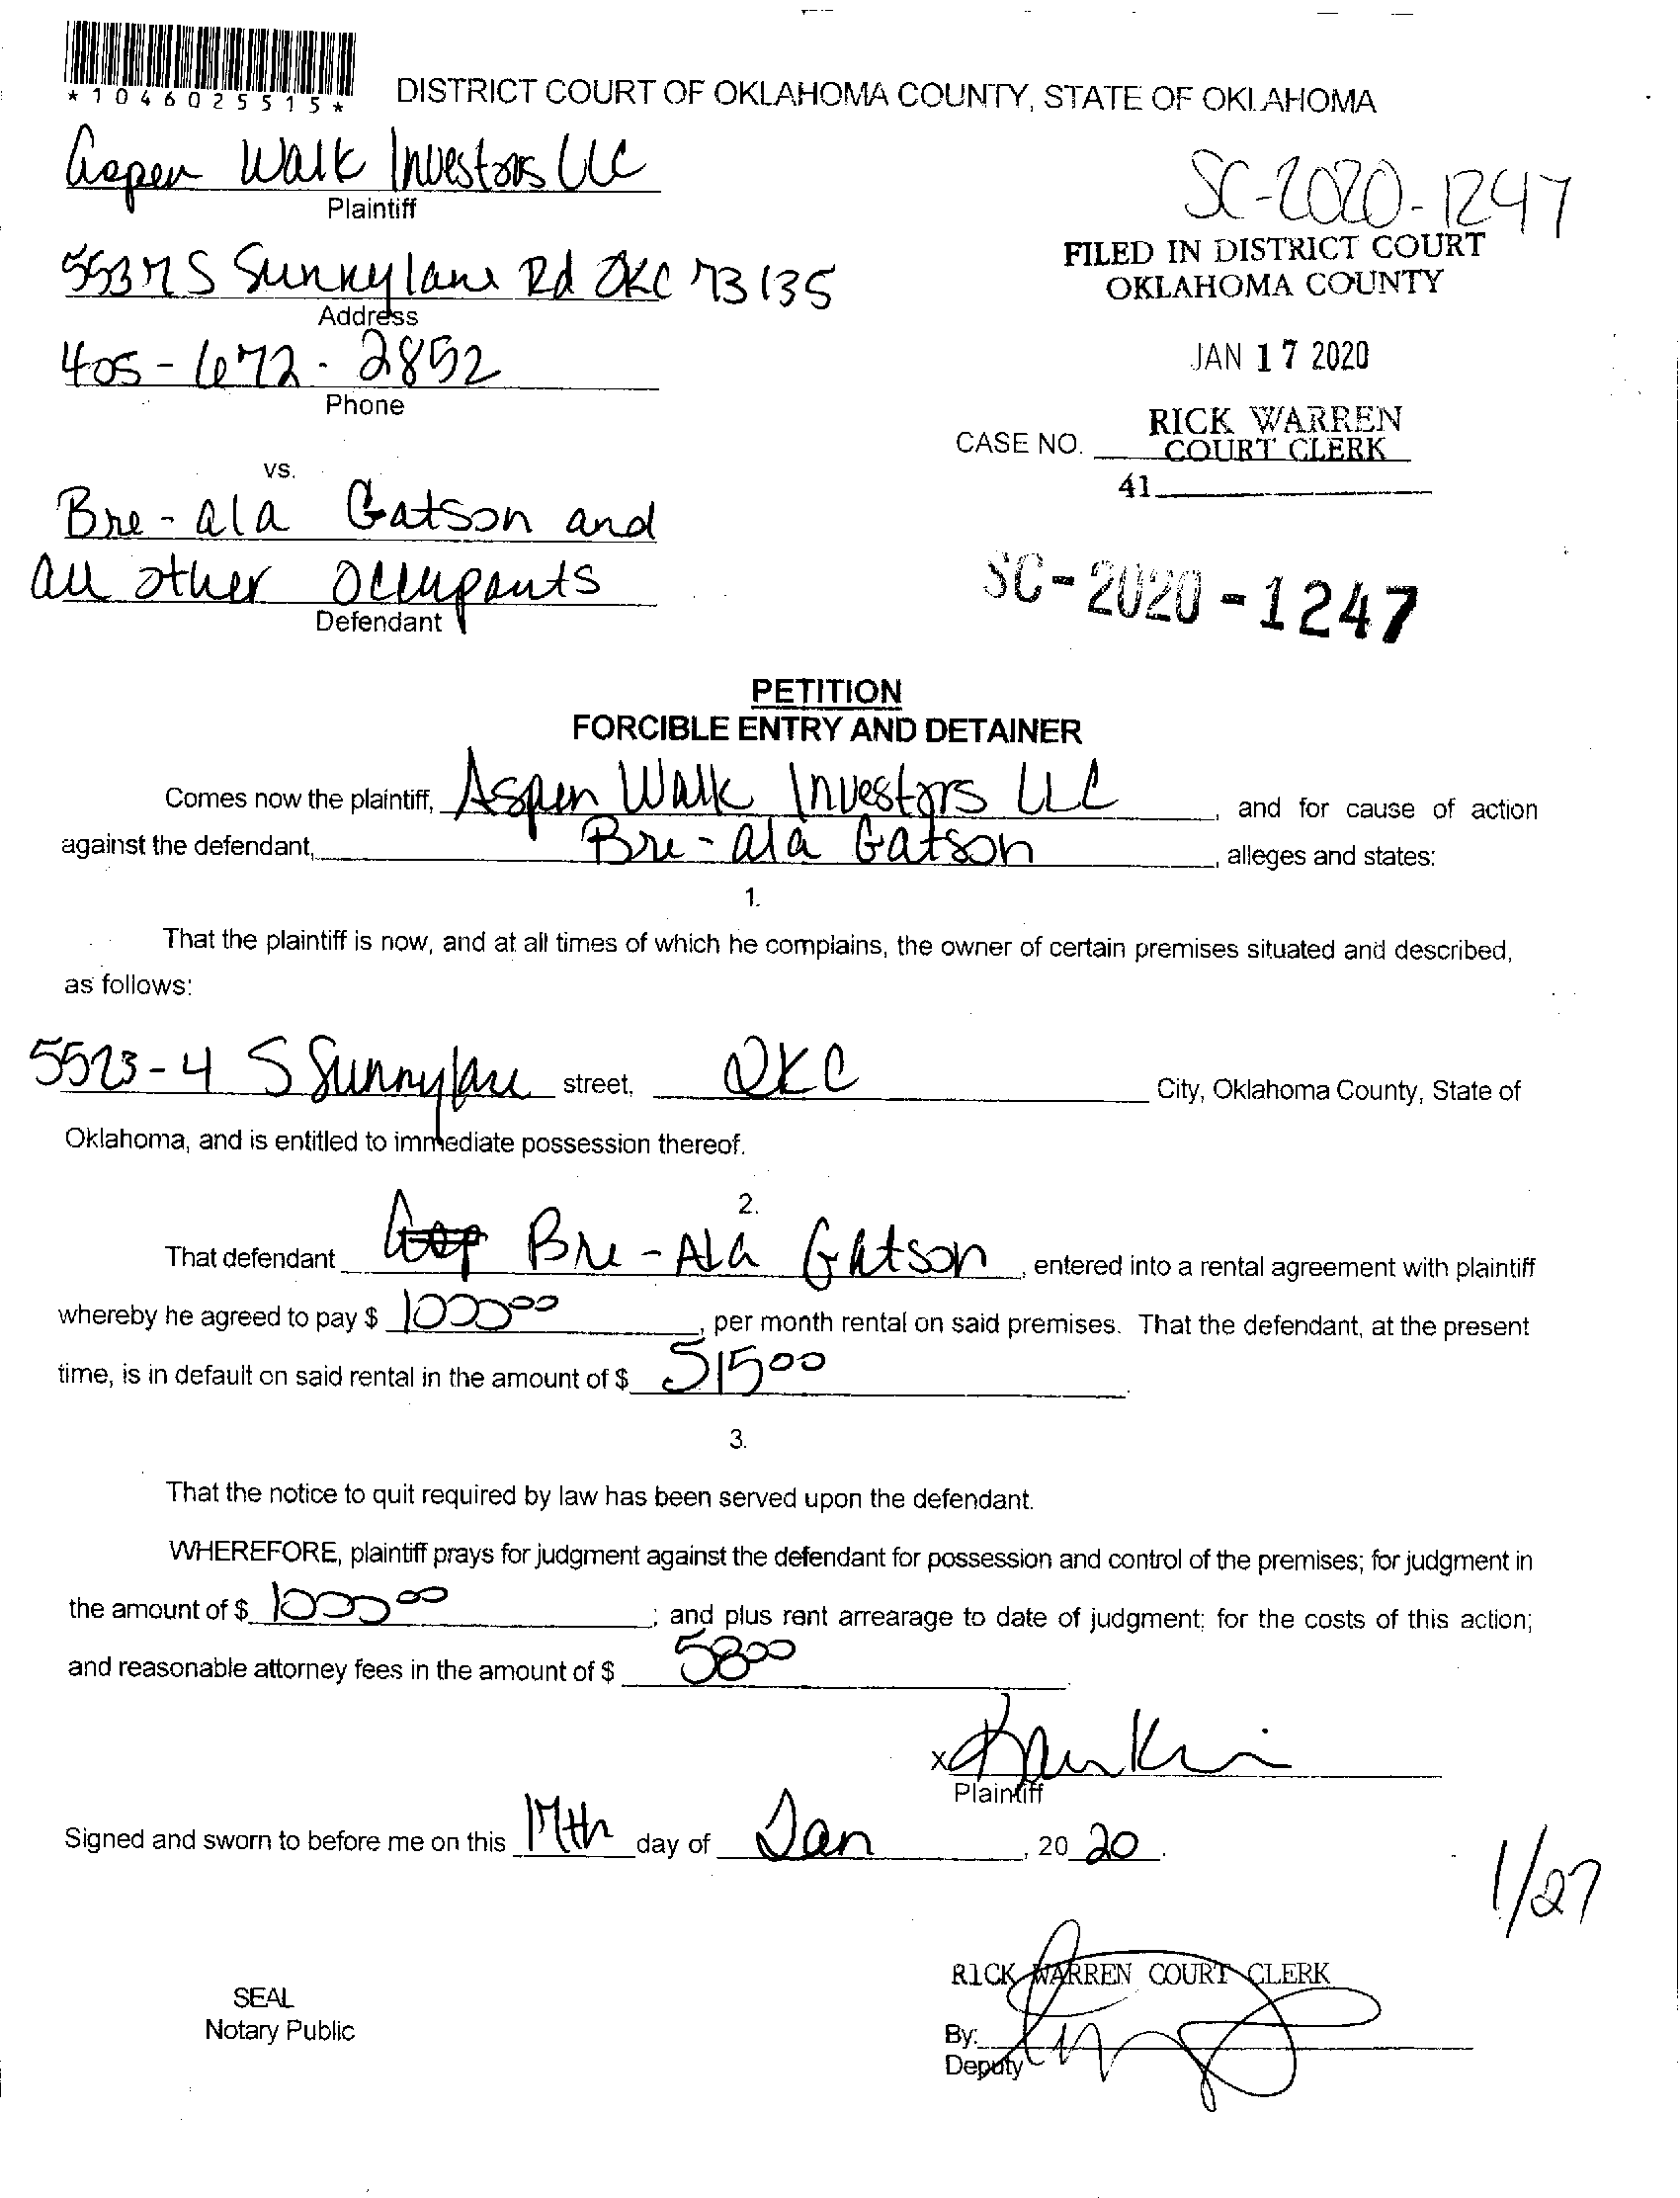 *1046025515*
DISTRICT COURT OF OKLAHOMA COUNTY, STATE OF OKLAHOMA
Aspen Walk Investors LLC
Plaintiff
SC-2020-1247
FILED IN DISTRICT COURT
OKLAHOMA COUNTY
5537 S Sunnylane Rd OKC 73135
Address
JAN 17 2020
405-672-2852
Phone
RICK WARREN
CASE NO. COURT CLERK
41
vs.
Bre-ala Gatson and
all other Occupants
Defendant
SC-2020-1247
PETITION
FORCIBLE ENTRY AND DETAINER
Comes now the plaintiff, Aspen Walk Investors LLC, and for cause of action
against the defendant, Bre-ala Gatson, alleges and states:
1.
That the plaintiff is now, and at all times of which he complains, the owner of certain premises situated and described,
as follows:
5523-4 S Sunnylane street, OKC City, Oklahoma County, State of
Oklahoma, and is entitled to immediate possession thereof.
2.
That defendant Bre-Ala Gatson, entered into a rental agreement with plaintiff
whereby he agreed to pay $ 1000 00, per month rental on said premises. That the defendant, at the present
time, is in default on said rental in the amount of $ 515 00.
3.
That the notice to quit required by law has been served upon the defendant.
WHEREFORE, plaintiff prays for judgment against the defendant for possession and control of the premises; for judgment in
the amount of $ 1000 00; and plus rent arrearage to date of judgment; for the costs of this action;
and reasonable attorney fees in the amount of $ 58 00
x
Plaintiff
Signed and sworn to before me on this 17th day of Jan, 20 20.
1/27
RICK WARREN COURT CLERK
SEAL
Notary Public
By:
Deputy